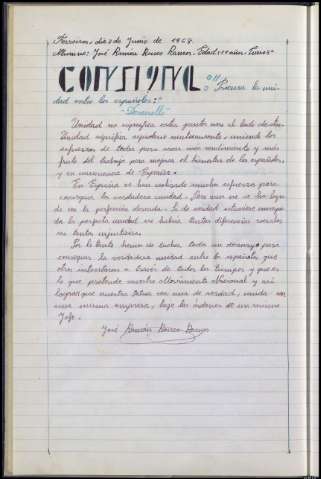 Ferreira, día 3 de Junio de 1968.
Alumno: José Ramón Rivas Ramos - Edad: 11 años - Curso 5º
CONSIGNA: "Procura la uni-
dad entre los españoles."
-Desarrollo-
Unidad no significa estar juntos uno al lado de otro.
Unidad significa ayudarse mutuamente, uniendo los
esfuerzos de todos para un rendimiento y más
fruto del trabajo para mejorar el bienestar de los españoles,
y en consecuencia de España.
En España se han realizado muchos esfuerzos para
conseguir la verdadera unidad. Pero aun no se ha logra-
do en la perfección deseada. Si de verdad estuviera conseguida
la perfecta unidad no habría tantas diferencias sociales,
ni tantas injusticias.
Por lo tanto hemos de luchar todos sin desmayo para
conseguir la verdadera unidad entre los españoles, que
otros intentaron a través de todos los tiempos y que es
lo que pretende nuestro Movimiento Nacional y así
lograr que nuestra Patria sea una de verdad, unida en
una misma empresa, bajo las órdenes de un mismo
Jefe.
José Ramón Rivas Ramos